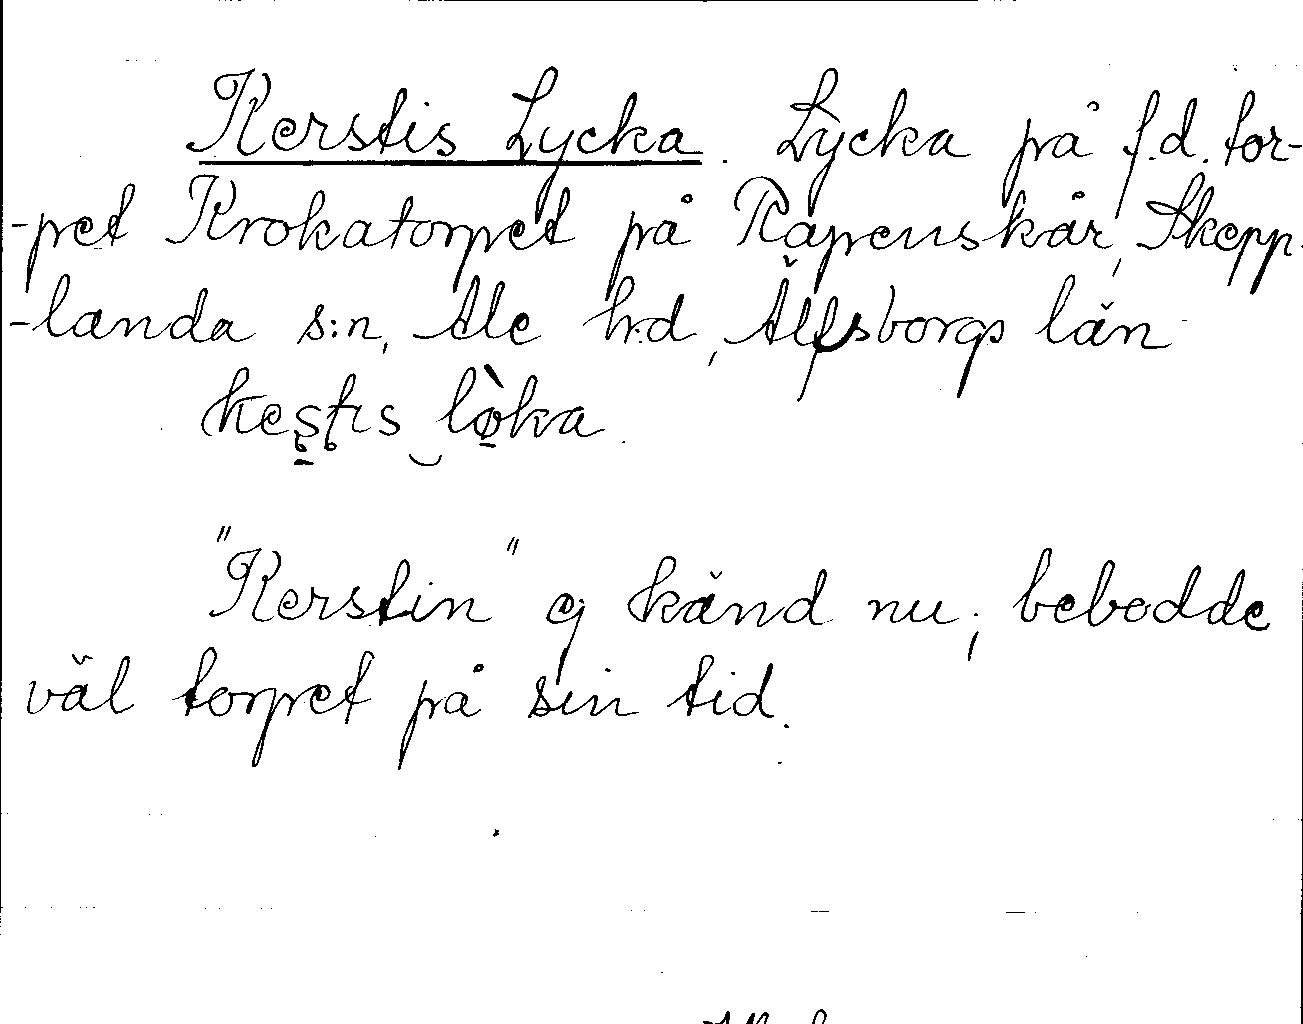 Kerstis Lycka. Lycka på f.d. tor-
-pet Krokatorpet på Rapenskår, Skepp-
-landa s:n, Ale h:d, Älfsborgs län
kestis løka.
"Kerstin" ej känd nu; bebodde
väl torpet på sin tid.